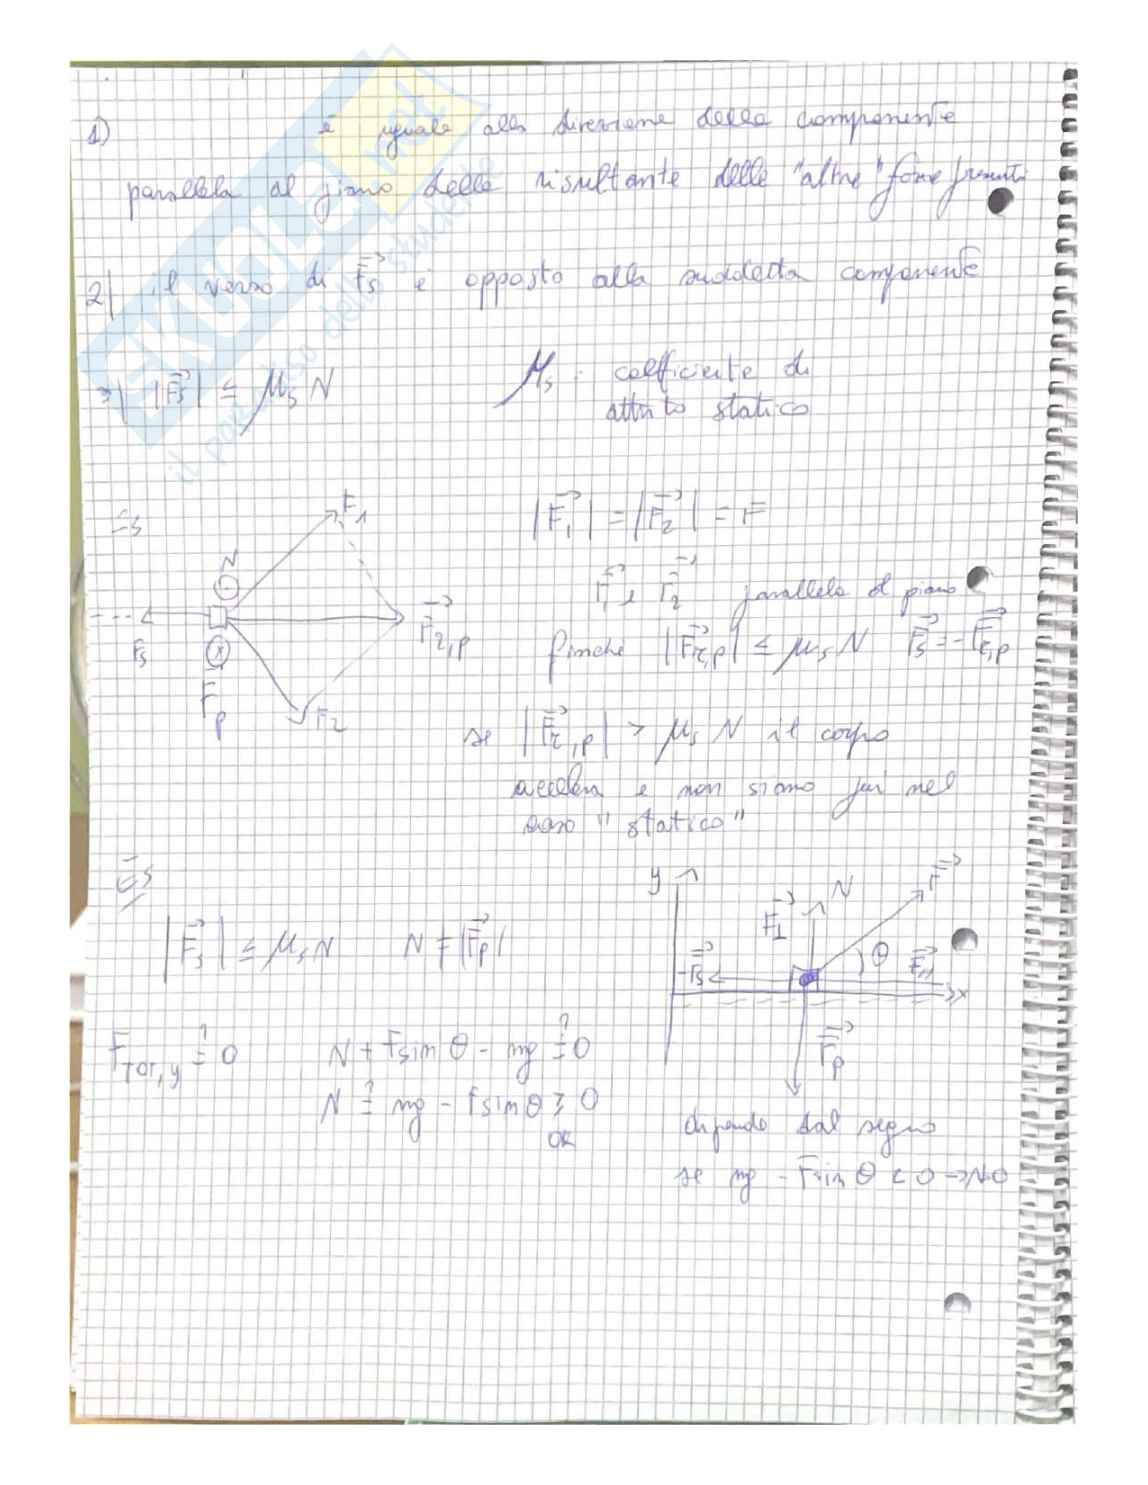 1) è uguale alla direzione della componente
parallela al piano della risultante delle "altre" forze presenti
2) il verso di F⃗s è opposto alla suddetta componente
3) |F⃗s| ≤ μs N
μs : coefficiente di
attrito statico
SKUOLA.net
il paradiso dello studente
Es
F1
N
Fs
F⃗r,p
F⃗p
F2
|F⃗1| = |F⃗2| = F
F⃗1 e F⃗2 paralleli al piano
finché |F⃗r,p| ≤ μs N F⃗s = -F⃗r,p
se |F⃗r,p| > μs N il corpo
accelera e non siamo più nel
caso "statico"
Es
|F⃗s| ≤ μs N N ≠ |F⃗p|
y
N
F⃗
F⃗⊥
θ
F⃗//
F⃗s
x
F⃗p
FTOT,y ≟ 0 N + F sin θ - mg ≟ 0
N ≟ mg - F sin θ ≥ 0
OK
dipende dal segno
se mg - F sin θ < 0 → NO